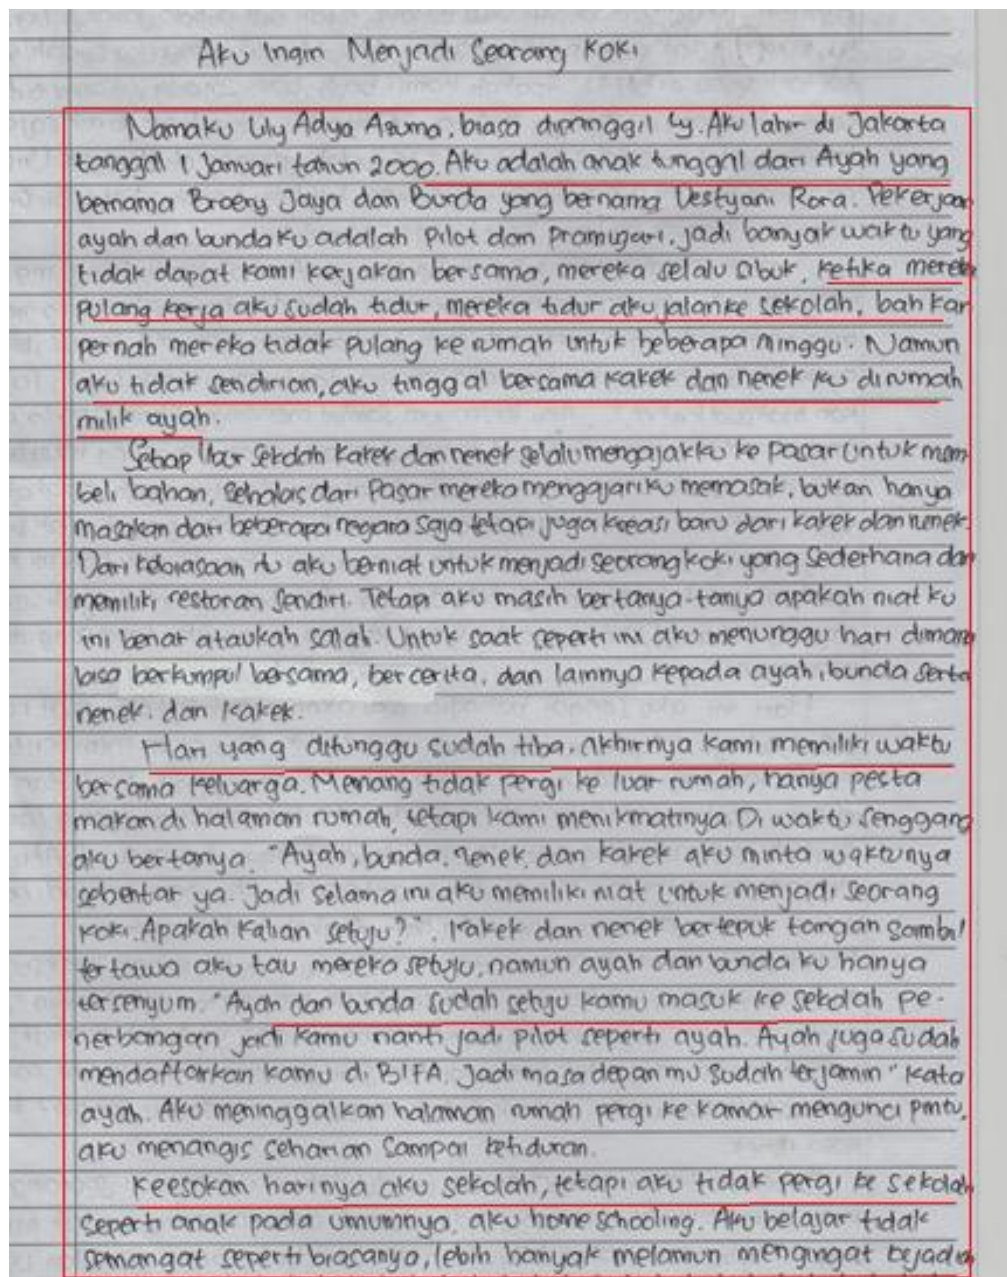 Aku Ingin Menjadi Seorang Koki
Namaku Lily Adya Azuma, biasa dipanggil Ly. Aku lahir di Jakarta
tanggal 1 Januari tahun 2000. Aku adalah anak tunggal dari Ayah yang
bernama Broery Jaya dan Bunda yang bernama Destyani Rora. Pekerjaan
ayah dan bundaku adalah Pilot dan Pramugari, jadi banyak waktu yang
tidak dapat kami kerjakan bersama, mereka selalu sibuk, ketika mereka
pulang kerja aku sudah tidur, mereka tidur aku jalan ke sekolah, bahkan
pernah mereka tidak pulang ke rumah untuk beberapa minggu. Namun
aku tidak sendirian, aku tinggal bersama kakek dan nenek ku dirumah
milik ayah.
Setiap libur sekolah kakek dan nenek selalu mengajakku ke pasar untuk mem
beli bahan, sehabis dari pasar mereka mengajariku memasak, bukan hanya
masakan dari beberapa negara saja tetapi juga kreasi baru dari kakek dan nenek.
Dari kebiasaan itu aku berniat untuk menjadi seorang koki yang sederhana dan
memiliki restoran sendiri. Tetapi aku masih bertanya-tanya apakah niat ku
ini benar ataukah salah. Untuk saat seperti ini aku menunggu hari dimana
bisa berkumpul bersama, bercerita, dan lainnya kepada ayah, bunda serta
nenek. dan kakek.
Hari yang ditunggu sudah tiba. akhirnya kami memiliki waktu
bersama keluarga. Memang tidak pergi ke luar rumah, hanya pesta
makan di halaman rumah, tetapi kami menikmatinya. Di waktu senggang
aku bertanya. "Ayah, bunda, nenek, dan kakek aku minta waktunya
sebentar ya. Jadi selama ini aku memiliki niat untuk menjadi seorang
koki. Apakah kalian setuju?". Kakek dan nenek bertepuk tangan sambil
tertawa aku tau mereka setuju, namun ayah dan bunda ku hanya
tersenyum. "Ayah dan bunda sudah setuju kamu masuk ke sekolah pe-
nerbangan jadi kamu nanti jadi pilot seperti ayah. Ayah juga sudah
mendaftarkan kamu di BIFA. Jadi masa depan mu sudah terjamin" kata
ayah. Aku meninggalkan halaman rumah pergi ke kamar mengunci pintu,
aku menangis seharian sampai ketiduran.
Keesokan harinya aku sekolah, tetapi aku tidak pergi ke sekolah
seperti anak pada umumnya, aku homeschooling. Aku belajar tidak
semangat seperti biasanya, lebih banyak melamun mengingat kejadian